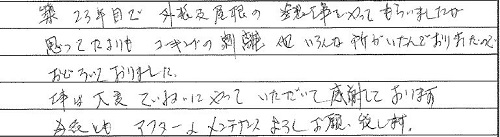 築23年目で 外装及屋根の 塗装工事をやってもらいましたが
思ってたよりも コーキングの剥離 他 いろんな所がいたんでおりましたので
おどろいておりました。
工事は大変 ていねいに やって いただいて 感謝しております
今後とも アフターメンテナンス よろしくお願い致します。